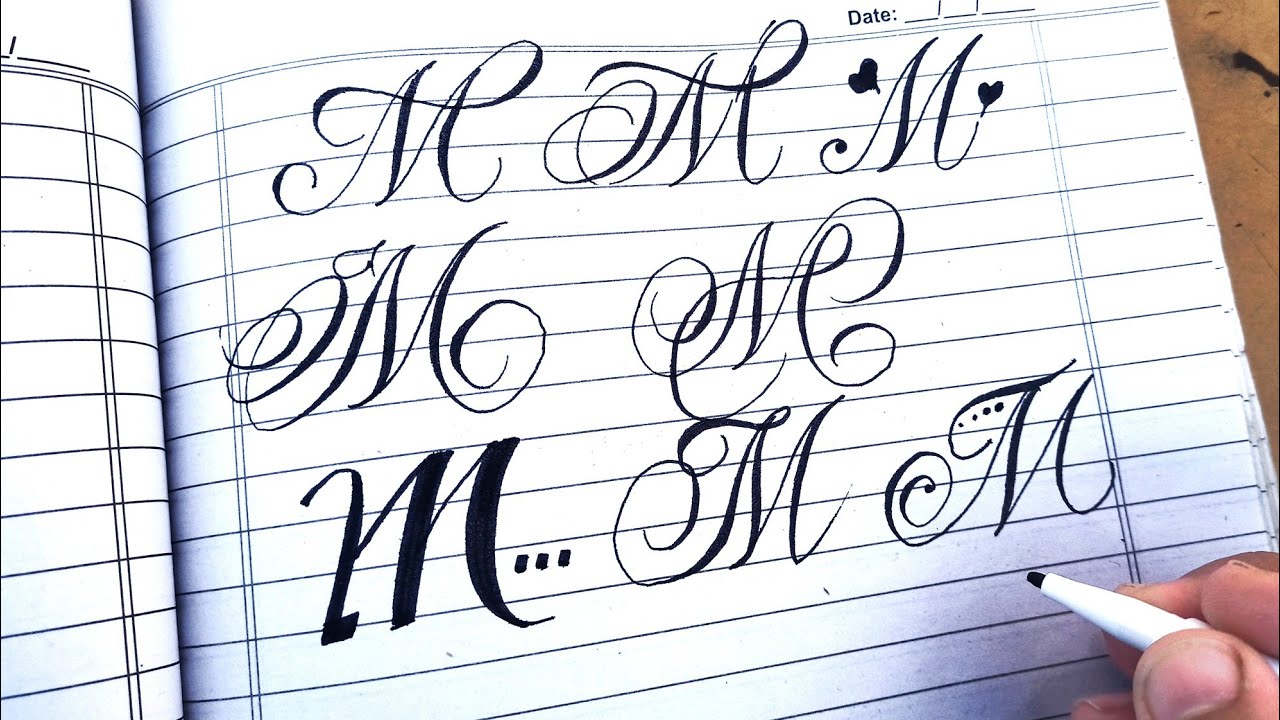 Date: __/__/__
M M M
M M
M... M M